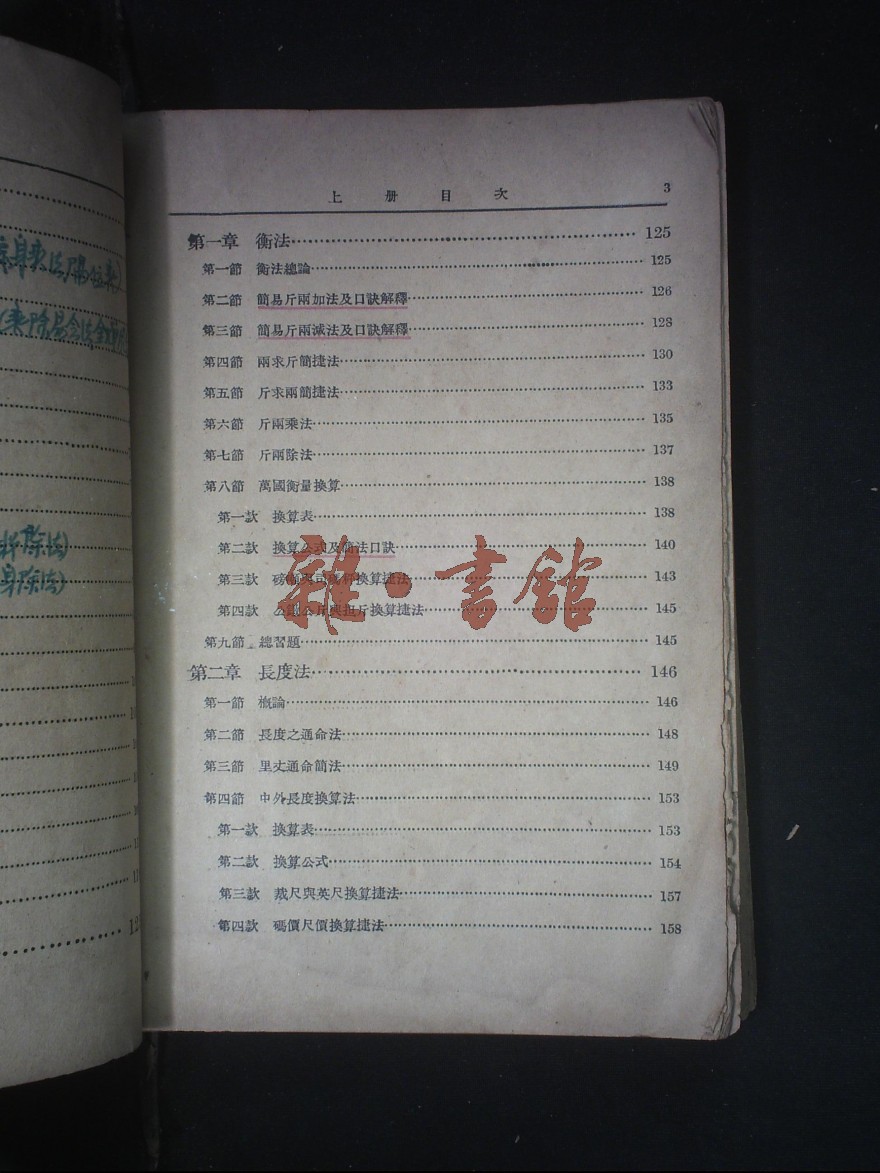 上冊目次 3
第一章 衡法 125
第一節 衡法總論 125
第二節 簡易斤兩加法及口訣解釋 126
第三節 簡易斤兩減法及口訣解釋 128
第四節 兩求斤簡捷法 130
第五節 斤求兩簡捷法 133
第六節 斤兩乘法 135
第七節 斤兩除法 137
第八節 萬國衡量換算 138
第一款 換算表 138
第二款 換算公式及簡法口訣 140
第三款 磅 換算捷法 143
第四款 公 公斤與担斤換算捷法 145
第九節 總習題 145
第二章 長度法 146
第一節 概論 146
第二節 長度之通命法 148
第三節 里丈通命簡法 149
第四節 中外長度換算法 153
第一款 換算表 153
第二款 換算公式 154
第三款 裁尺與英尺換算捷法 157
第四款 碼價尺價換算捷法 158
雜·書館